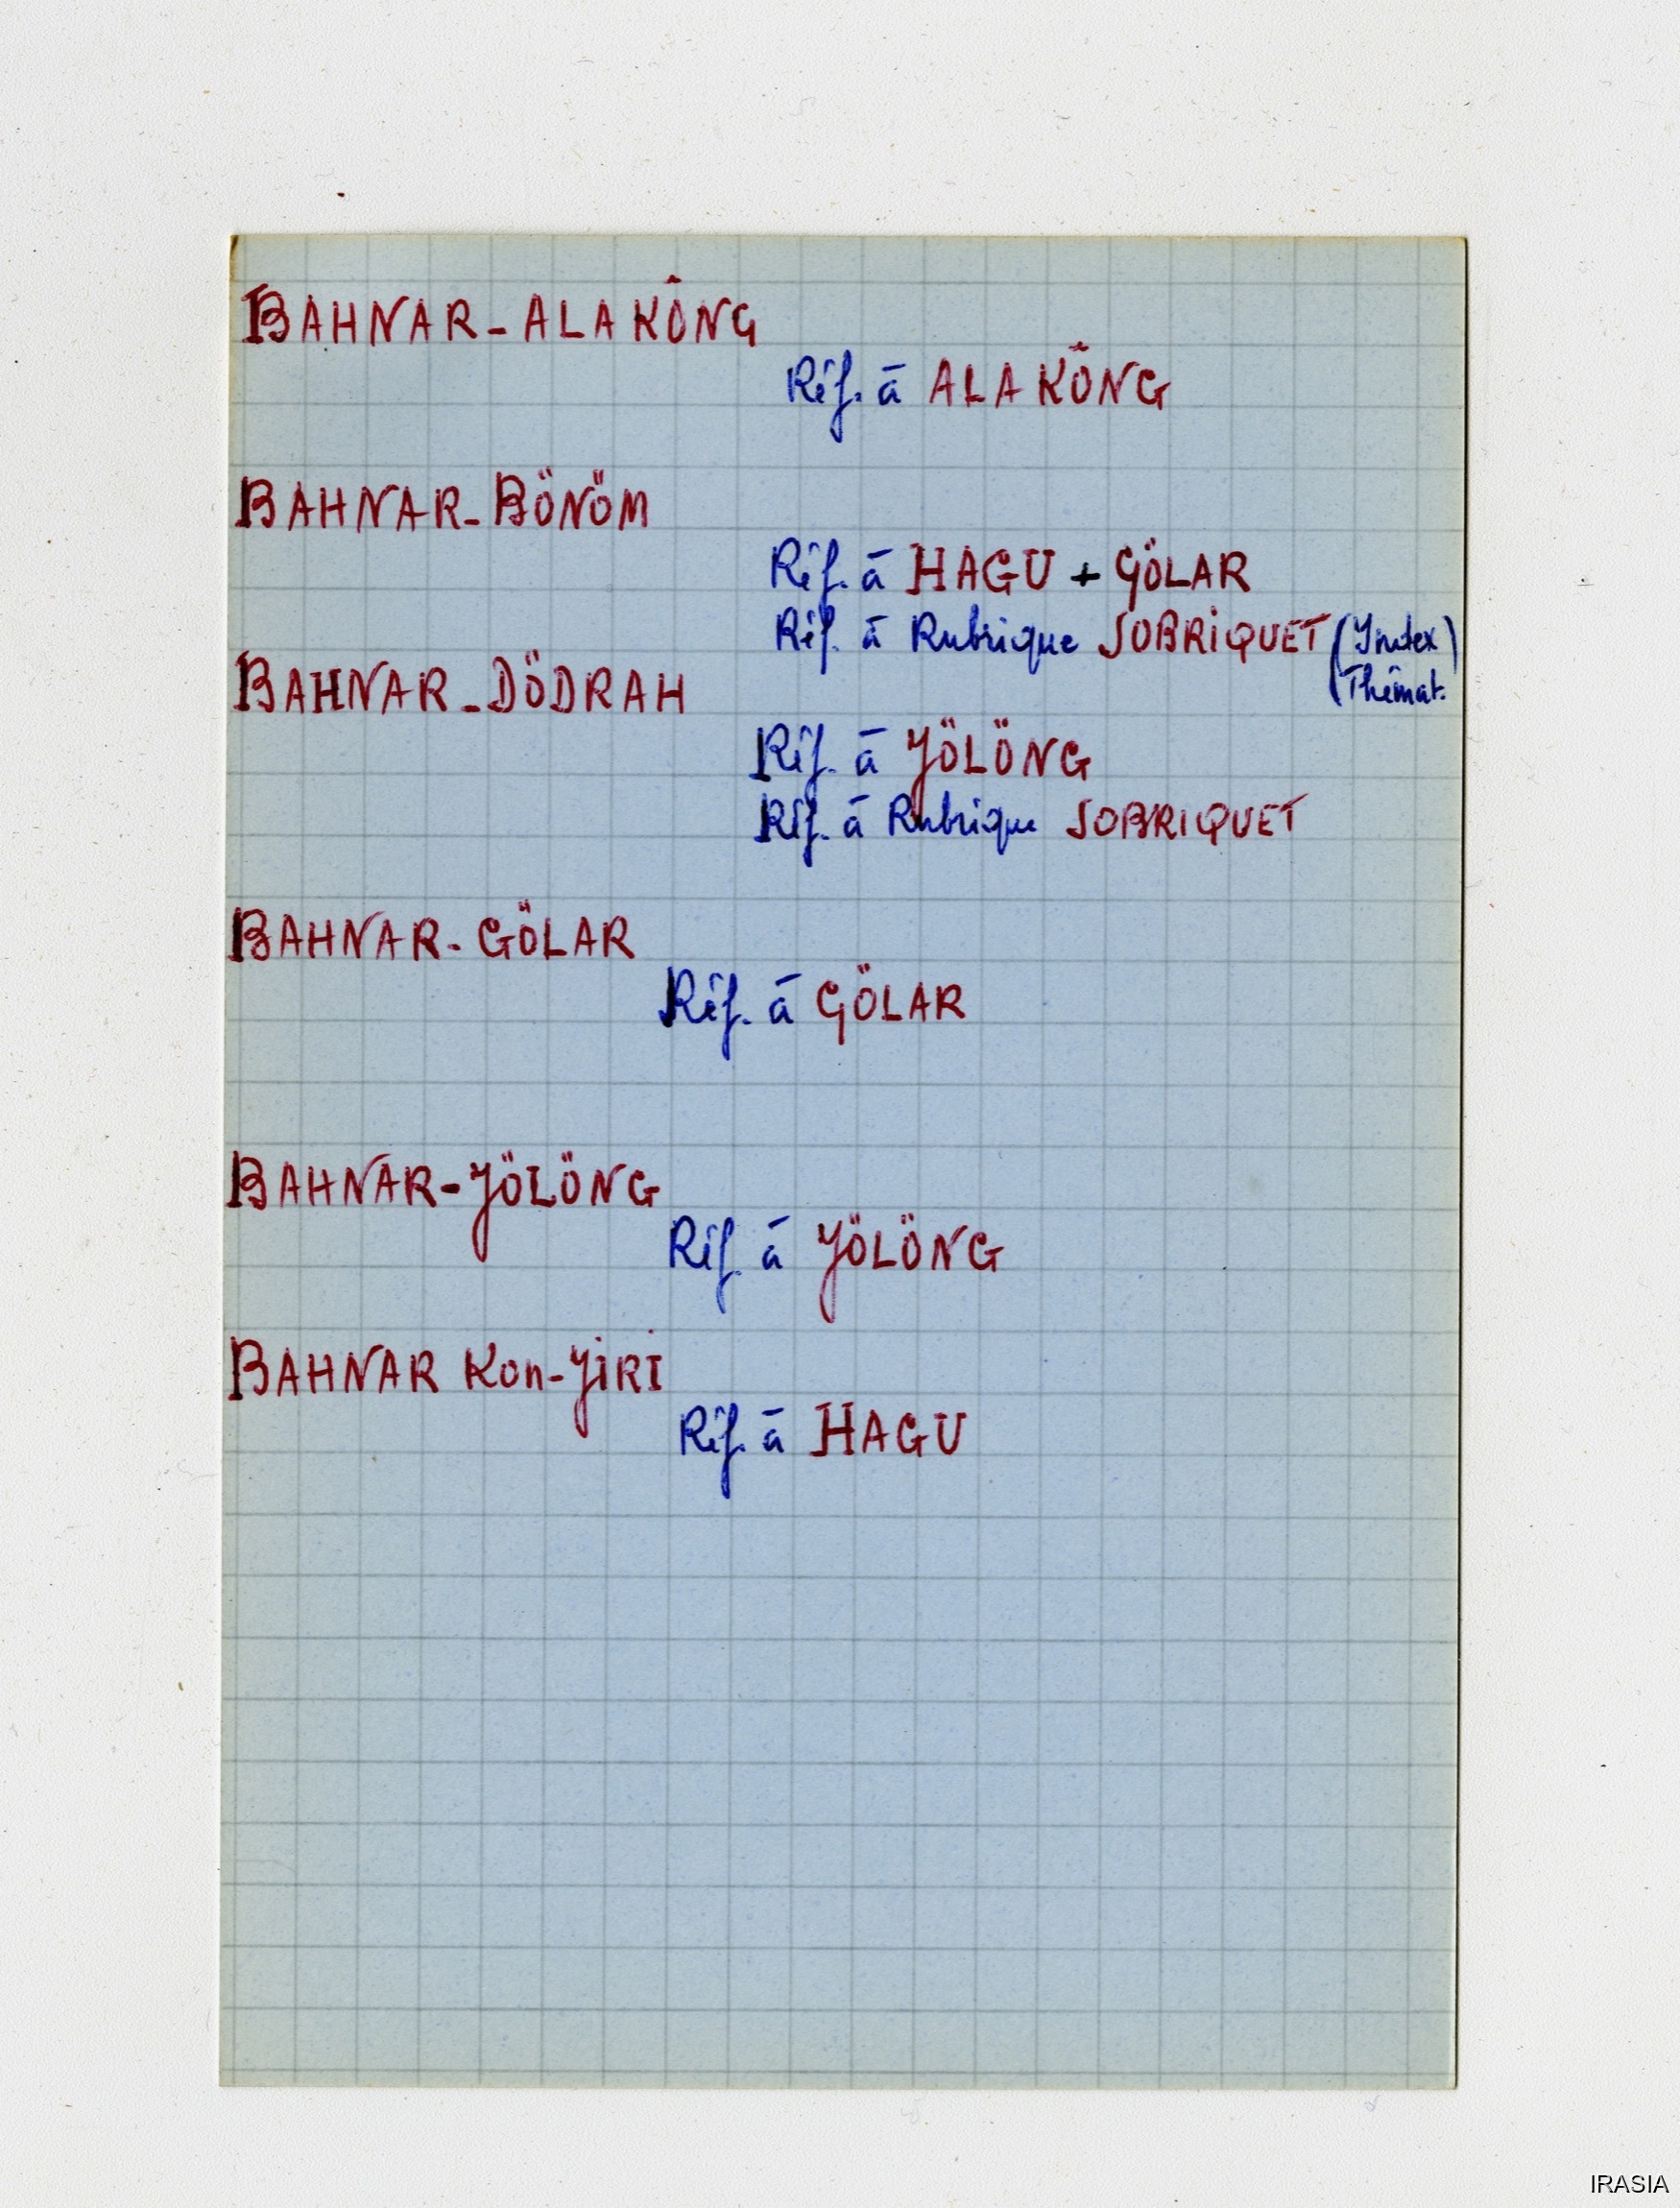 BAHNAR-ALAKÔNG
Réf. à ALAKÔNG
BAHNAR-BÖNÖM
Réf. à HAGU + GÖLAR
Réf. à Rubrique SOBRIQUET (Index)
(Thémat.
BAHNAR-DÖDRAH
Réf. à JÖLÖNG
Réf. à Rubrique SOBRIQUET
BAHNAR-GÖLAR
Réf. à GÖLAR
BAHNAR-JÖLÖNG
Réf. à JÖLÖNG
BAHNAR Kon-JIRI
Réf. à HAGU
IRASIA